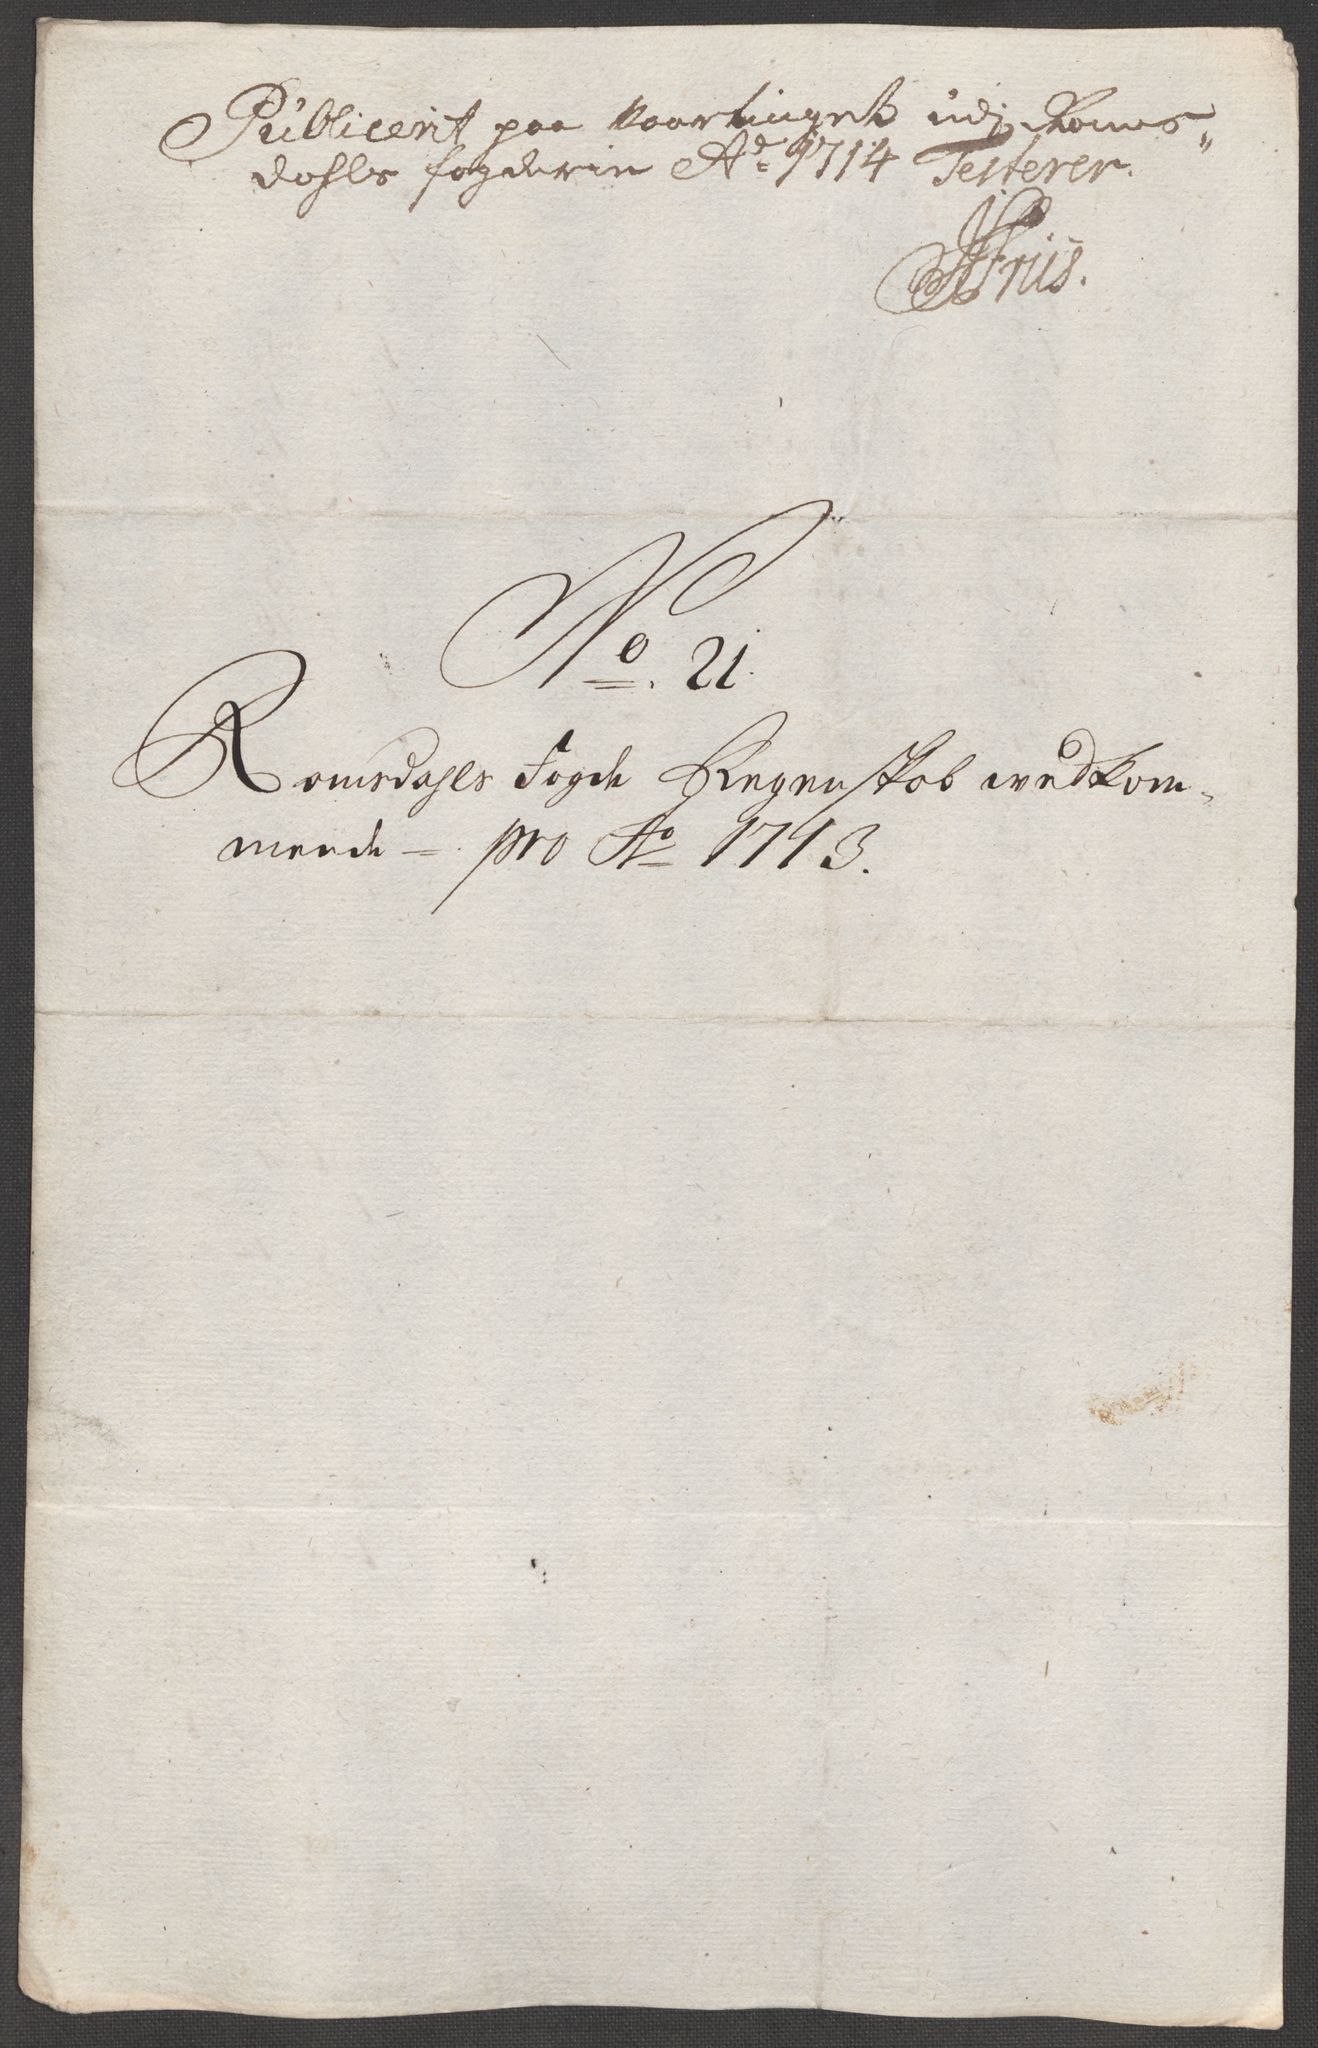 Publicerit paa Vaartinget udj Roms"
dahls fogderie Ao 1714 Testerer.
Friis.
No. 21.
Romsdahls Fogde Regenskab wedkom-
mende — pro Ao 1713.